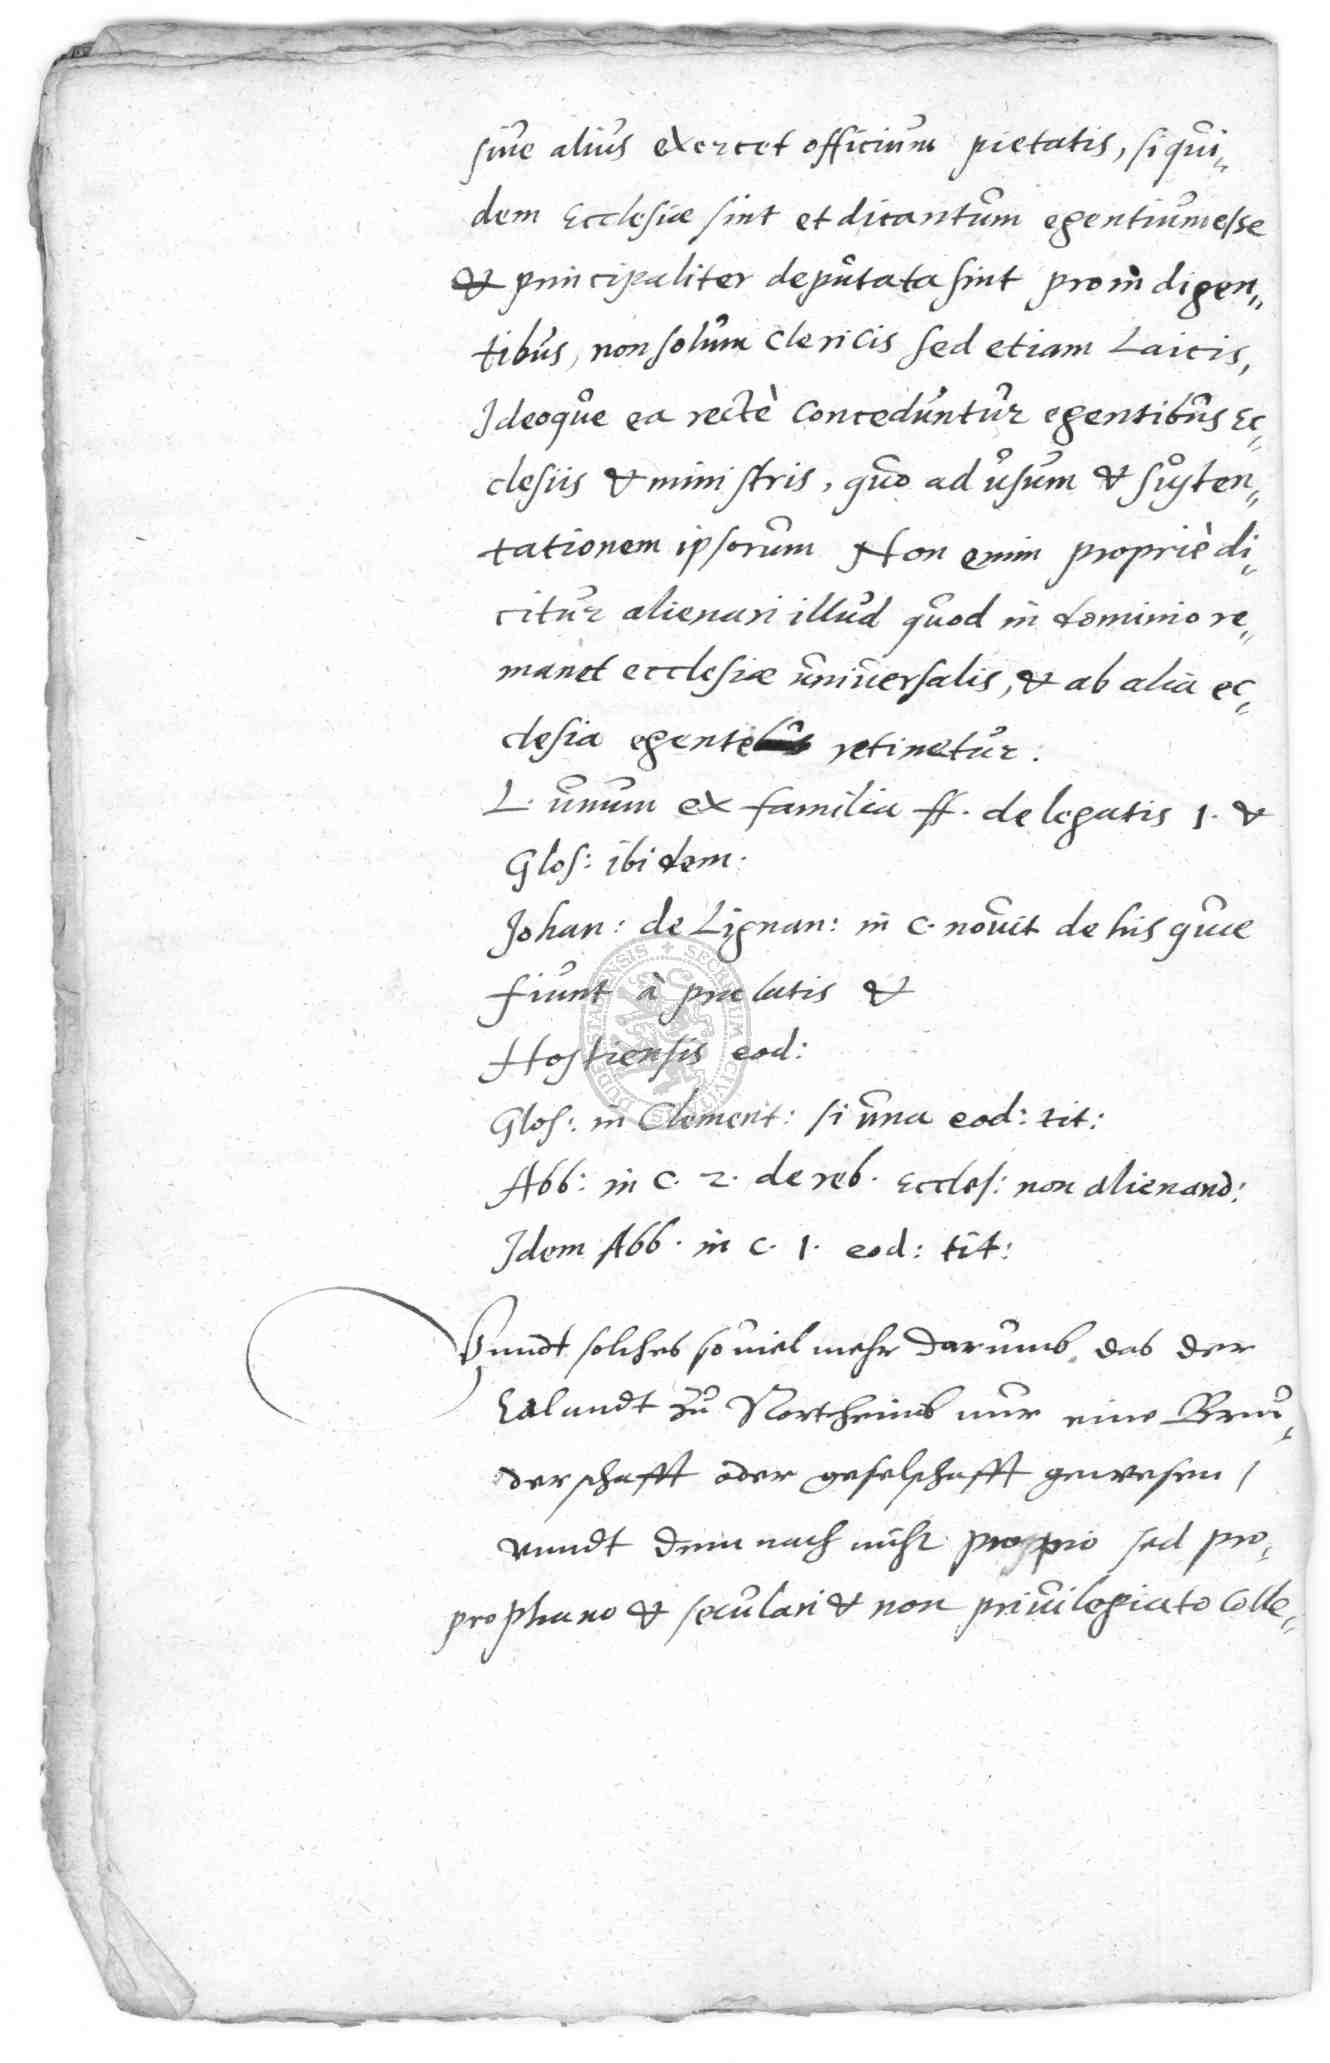 siue alius exercet officium pietatis, siqui„
dem Ecclesiæ sint et dicantum egentium esse
& principaliter deputata sint pro indigen„
tibus, non solum Clericis sed etiam Laicis,
Ideoque ea rectè conceduntur egentibus Ec„
clesiis & ministris, quo ad usum & susten„
tationem ipsorum Non enim propriè di„
citur alienari illud quod in dominio re„
manet ecclesiæ uniuersalis, & ab alia ec„
clesia egente retinetur.
L. unum ex familia ff. de legatis 1. &
Glos: ibidem.
Johan: de Lignan: in c. nouit de his quæ
fiunt à prælatis &
Hostiensis eod:
Glos: in Clement: si una eod: tit:
Abb: in c. 2. de reb. Eccles: non alienand:
Idem Abb. in c. 1. eod: tit:
Vnndt solches souiel mehr darumb, das der
Calandt zu Northeimb nur eine Bru„
derschafft oder geselschafft gewesen,
vnndt dem nach nicht proprio sed pro„
prophano & seculari & non priuilegiato Colle„
SECRETUM CIVITATIS DUDERSTADENSIS